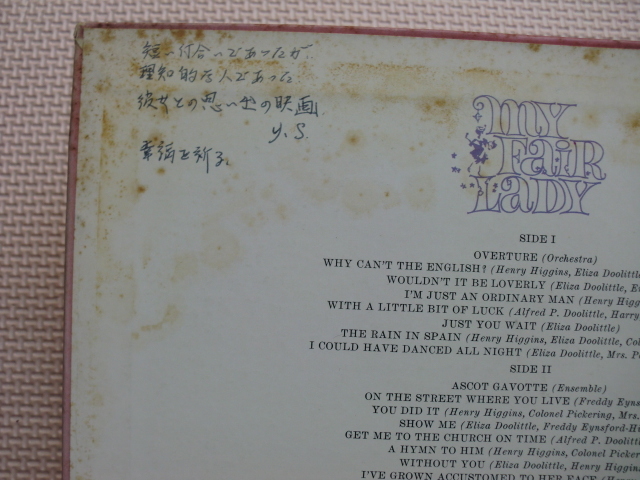 短い付合いであったが
理知的な人であった
彼女との思い出の映画
y.s.
幸福を祈る。
MY
FAIR
LADY
SIDE I
OVERTURE (Orchestra)
WHY CAN'T THE ENGLISH? (Henry Higgins, Eliza Doolittle
WOULDN'T IT BE LOVERLY (Eliza Doolittle, E
I'M JUST AN ORDINARY MAN (Henry Higg
WITH A LITTLE BIT OF LUCK (Alfred P. Doolittle, Harry
JUST YOU WAIT (Eliza Doolittle)
THE RAIN IN SPAIN (Henry Higgins, Eliza Doolittle, Col
I COULD HAVE DANCED ALL NIGHT (Eliza Doolittle, Mrs. P
SIDE II
ASCOT GAVOTTE (Ensemble)
ON THE STREET WHERE YOU LIVE (Freddy Eyns
YOU DID IT (Henry Higgins, Colonel Pickering, Mrs.
SHOW ME (Eliza Doolittle, Freddy Eynsford-Hi
GET ME TO THE CHURCH ON TIME (Alfred P. Doolitt
A HYMN TO HIM (Henry Higgins, Colonel Picker
WITHOUT YOU (Eliza Doolittle, Henry Higgins
I'VE GROWN ACCUSTOMED TO HER FACE (Henr